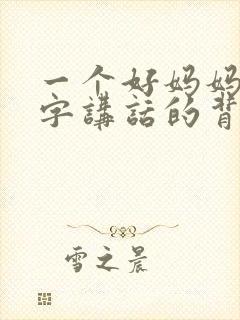 一个好妈妈
字講話的背
雪之晨